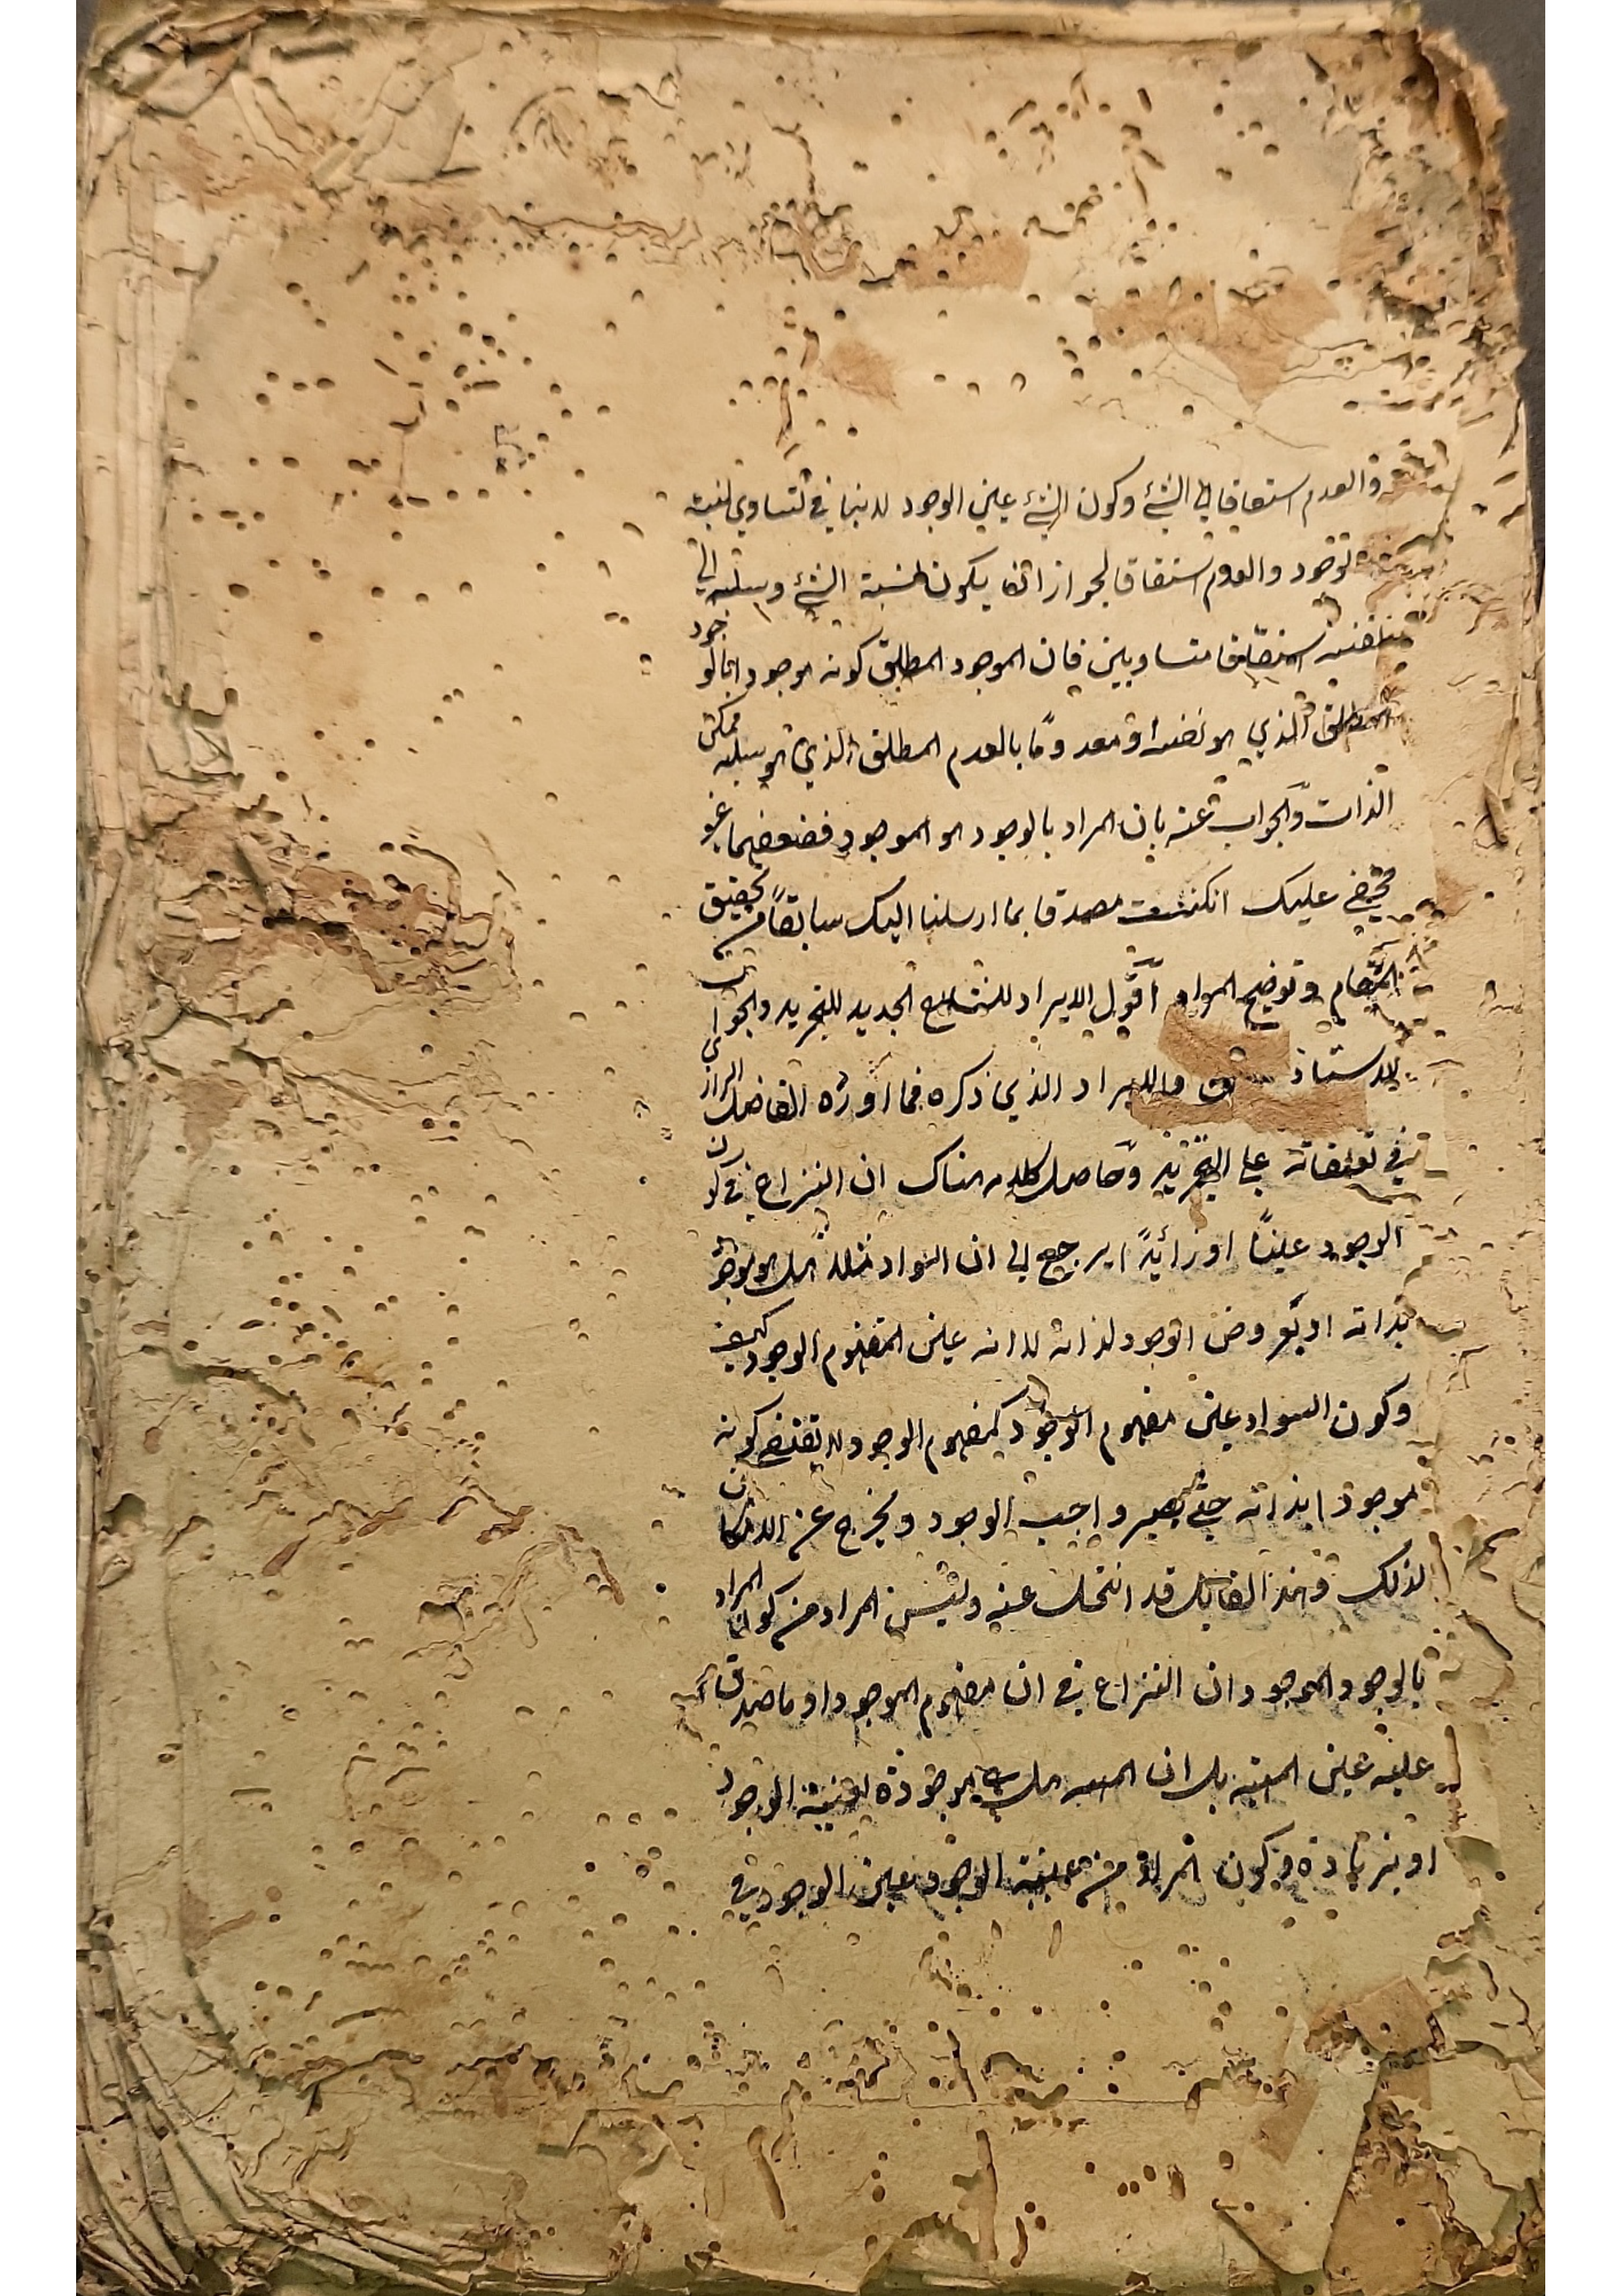 والعدم اشتقاقا الى الشئ وكون الشئ عين الوجود لا ينافي تساوي نسبة
الوجود والعدم اشتقاقا لجواز ان يكون نسبة الشئ وسلبه الى
نفسه اشتقاقا متساويين فان الموجود المطلق كونه موجودا بالوجود
المطلق الذي هو نفسه او معدوما بالعدم المطلق الذي هو سلبه ممكن
الذات والجواب عنه بان المراد بالوجود هو الموجود فضعفهما غير
مخفي عليك ان كنت مصدقا بما ارسلنا اليك سابقا من تحقيق
المقام وتوضيح المرام اقول الايراد للشارح الجديد للتجريد والجواب
للاستاذ والايراد الذي ذكره مما اورده الفاضل الرازي
في تعليقاته على التجريد وحاصل كلامه هناك ان النزاع في كون
الوجود عينا او زائدا يرجع الى ان السواد مثلا هل هو موجود
بذاته او بعروض الوجود لذاته لا انه عين المفهوم الوجود كيف
وكون السواد عين مفهوم الوجود كمفهوم الوجود لا يقتضي كونه
موجودا بذاته حتى يصير واجب الوجود ويخرج عن الامكان
لذلك وهذا القائل قد انتحل عنه وليس المراد من كون المراد
بالوجود الموجود ان النزاع في ان مفهوم الموجود او ما صدق
عليه عين المهية بل ان المهية هل هي موجودة بعينية الوجود
او بزيادة وكون المراد من عينية الوجود عين الوجود في